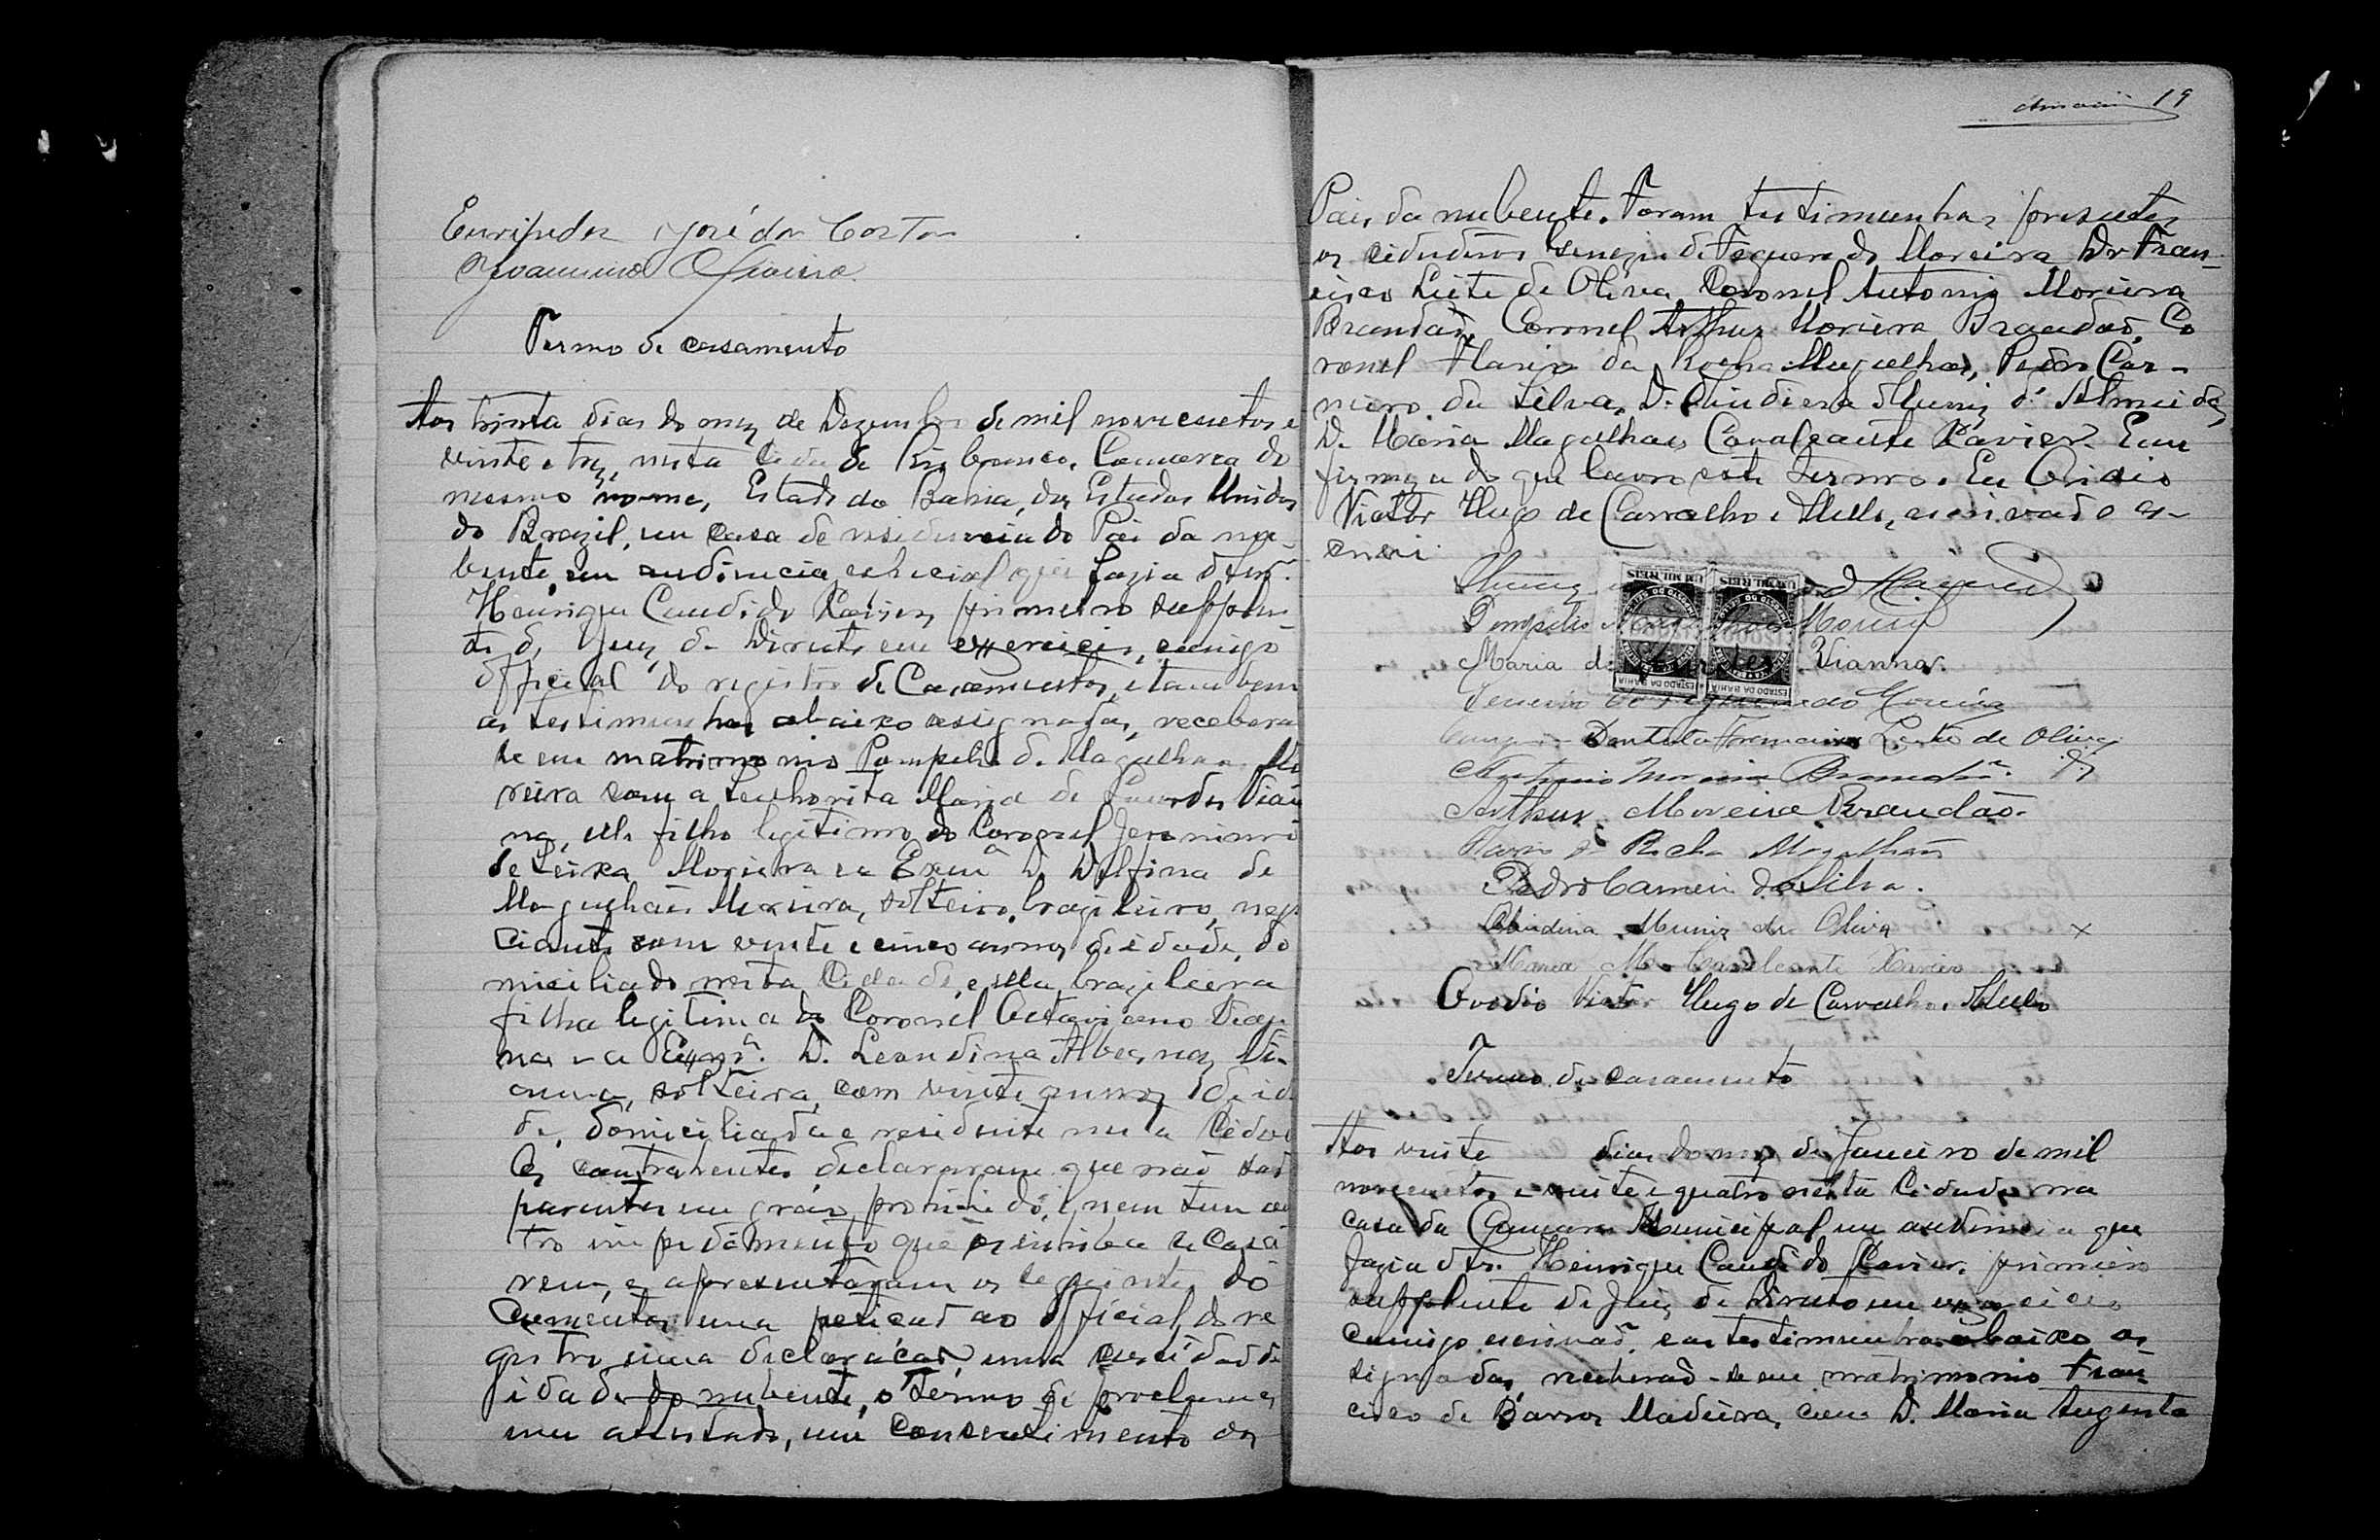 Euripedes José da Costa
Termo de casamento
Aos trinta dias do mez de Dezembro de mil novecentos e
vinte e trez, nesta Cidade de Rio branco, Comarca do
mesmo nome, Estado da Bahia, dos Estados Unidos
do Brazil, em casa de residencia do Pai da nu-
bente, em audiencia especial que fazia o
Henrique Candido Xavier, primeiro supplen-
te do Juiz de Direito em exercicio, comigo
official do registro de Casamentos, e tambem
as testimunhas abaixo assignadas, recebera
se em matrimonio Pompilio de Magalhaes Mo
reira com a senhorita Maria de Lourdes Vian
na, elle filho legitimo do Coronel Jeronimo
de Moreira e a Exmª D. Delfina de
Magalhães Moreira, solteiro, brazileiro, nego
ciante com vinte e cinco annos de idade, do
miciliado nesta Cidade, e ella brazileira
filha legitima do Coronel Octaviano Vian
na e a Exmª. D. Leondina Vi-
anna, solteira, com vinte annos de ida
de, domiciliada e residente nesta Cidade
Os contrahentes declararam que não são
parentes em gráo prohibido, nem tem ou
tro impedimento que os inhiba de casa
rem, e apresentaram os seguintes do
cumentos uma petição ao official do re
gistro, uma declaração, uma certidão de
idade do nubente, o termo de proclamas
um attestado, um consentimento dos
19
Pais da nubente. Foram testimunhas presentes
os cidadãos de Figueredo Moreira Dr Fran-
cisco Leite de Oliva, Coronel Antonio Moreira
Brandão, Coronel Arthur Moreira Brandão, Co
ronel da Rocha Magalhães, Pedro Car-
neiro da Silva, D. Muniz d' Almeida
D. Maria Magalhaes Cavalcante Xavier. E em
firmeza do que lavro este termo. Eu Ovidio
Victor Hugo de Carvalho e Mello, escrivão o es-
crevi.
UM MIL REIS UM MIL REIS
Pompilio Magalhães Moreira
Maria de Lourdes Vianna.
ESTADO DA BAHIA ESTADO DA BAHIA
de Figueredo Moreira
Leite de Oliva
Antonio Moreira Brandão.
Arthur Moreira Brandão.
da Rocha Magalhães
Pedro Carneiro da Silva.
Muniz de Oliva
Maria M. Cavalcante Xavier
Ovidio Victor Hugo de Carvalho e Mello
Termo de casamento
Aos vinte dias do mez de Janeiro de mil
novecentos e vinte e quatro nesta Cidade na
casa da Camara Municipal em audiencia que
fazia o Sr. Henrique Candido Xavier, primeiro
supplente do Juiz de Direito em exercicio
comigo escrivão e as testimunhas abaixo as
signadas, receberão-se em matrimonio Fran
cisco de Barros Madeira, com D. Maria Augusta